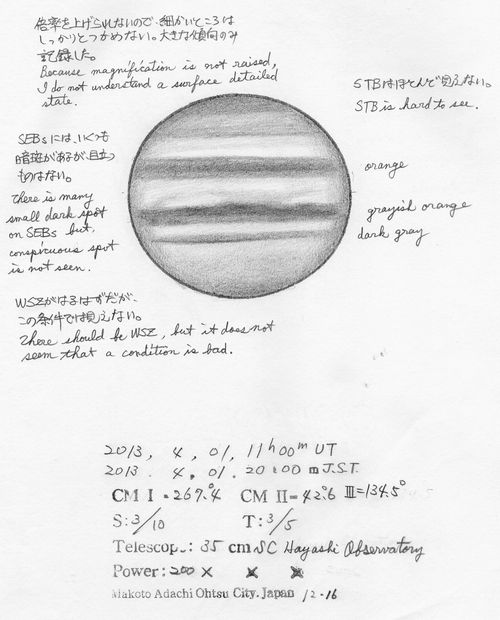 倍率を上げられないので、細かいところは
しっかりとつかめない。大きな傾向のみ
記録した。
Because magnification is not raised,
I do not understand a surface detailed
state.
STBはほとんど見えない。
STB is hard to see.
SEBsには、いくつも
暗斑があるが目立つ
ものはない。
There is many
small dark spot
on SEBs but,
conspicuous spot
is not seen.
orange
grayish orange
dark gray
WSZがはるはずだが、
この条件では見えない。
There should be WSZ, but it does not
seem that a condition is bad.
2013, 4, 01, 11h00m UT
2013. 4. 01. 20:00 m J.S.T.
CM I = 267.°4 CM II= 42.°6 III=134.5°
S: 3/10 T: 3/5
Telescop.: 35 cm SC Hayashi Observatory
Power: 200 × × ×
Makoto Adachi Ohtsu City. Japan 12-16